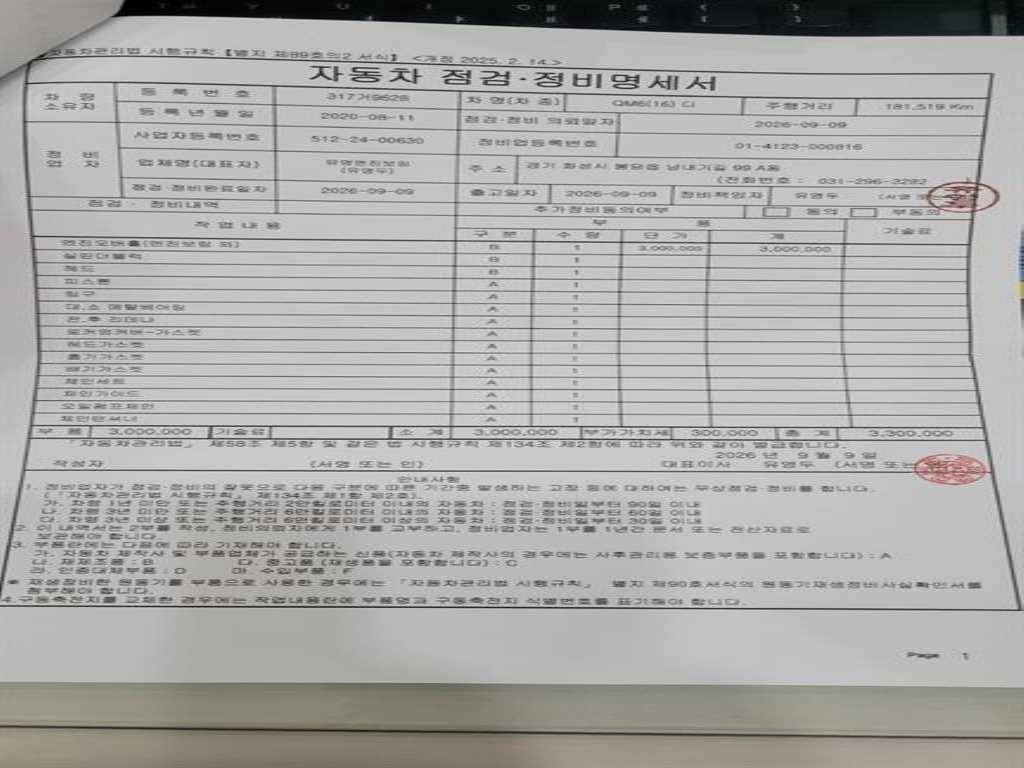 자동차관리법 시행규칙 【별지 제89호의2 서식】 <개정 2025. 2. 14.>
자동차 점검·정비명세서
차 량 소유자 등 록 번 호 317거9628 차 명(차 종) QM6(16) 디 주행거리 181,519 Km
등 록 년 월 일 2020-08-11 점검·정비 의뢰일자 2026-09-09
정 비 업 자 사업자등록번호 512-24-00630 정비업등록번호 01-4123-000816
업체명(대표자) 유영엔진보링 (유영두) 주 소 경기 화성시 봉담읍 남내기길 99 A동
(전화번호 : 031-296-3282 )
점검·정비완료일자 2026-09-09 출고일자 2026-09-09 정비책임자 유영두 (서명 또는
점검 · 정비내역 추가정비동의여부 동의 부동의
작 업 내 용 부 품 기술료
구 분 수 량 단 가 계
엔진오버홀(엔진보링 외) B 1 3,000,000 3,000,000
실린더블럭 B 1
헤드 B 1
피스톤 A 1
링구 A 1
대.소 메탈베어링 A 1
전.후 리데나 A 1
로커암커버-가스켓 A 1
헤드가스켓 A 1
흡기가스켓 A 1
배기가스켓 A 1
체인세트 A 1
체인가이드 A 1
오일펌프체인 A 1
체인텐셔너 A 1
부 품 3,000,000 기술료 소 계 3,000,000 부가가치세 300,000 총 계 3,300,000
「자동차관리법」 제58조 제5항 및 같은 법 시행규칙 제134조 제2항에 따라 위와 같이 발급합니다.
2026 년 9 월 9 일
작성자 (서명 또는 인) 대표이사 유영두 (서명 또는
안내사항
1. 정비업자가 점검·정비의 잘못으로 다음 구분에 따른 기간중 발생하는 고장 등에 대하여는 무상점검·정비를 합니다.
(「자동차관리법 시행규칙」 제134조 제1항 제2호).
가. 차령 1년 미만 또는 주행거리 2만킬로미터 이내의 자동차 : 점검·정비일부터 90일 이내
나. 차령 3년 미만 또는 주행거리 6만킬로미터 이내의 자동차 : 점검·정비일부터 60일 이내
다. 차령 3년 이상 또는 주행거리 6만킬로미터 이상의 자동차 : 점검·정비일부터 30일 이내
2. 이 내역서는 2부를 작성, 정비의뢰자에게 1부를 교부하고, 정비업자는 1부를 1년간 문서 또는 전산자료로
보관해야 합니다
3. 부품란에는 다음에 따라 기재해야 합니다.
가. 자동차 제작사 및 부품업체가 공급하는 신품(자동차 제작사의 경우에는 사후관리용 보증부품을 포함합니다) : A
나. 재제조품 : B 다. 중고품(재생품을 포함합니다) : C
라. 인증대체부품 : D 마. 수입부품 : F
* 재생정비한 원동기를 부품으로 사용한 경우에는 「자동차관리법 시행규칙」 별지 제90호서식의 원동기재생정비사실확인서를
첨부해야 합니다.
4.구동축전지를 교체한 경우에는 작업내용란에 부품명과 구동축전지 식별번호를 표기해야 합니다.
Page 1